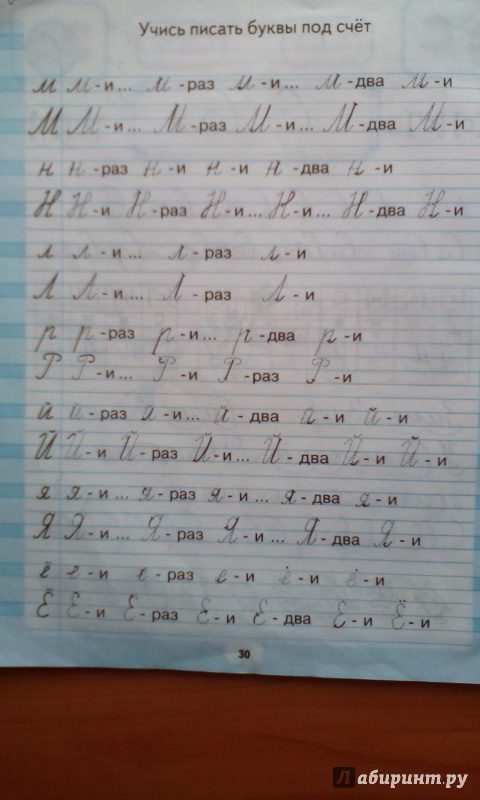 Учись писать буквы под счёт
м м - и ... м - раз м - и ... м - два м - и
М М - и ... М - раз М - и ... М - два М - и
н н - раз н - и н - и н - два н - и
Н Н - и Н - раз Н - и ... Н - и ... Н - два Н - и
л л - и ... л - раз л - и
Л Л - и ... Л - раз Л - и
р р - раз р - и ... р - два р - и
Р Р - и ... Р - и Р - раз Р - и
й й - раз й - и ... й - два й - и й - и
Й Й - и Й - раз Й - и ... Й - два Й - и Й - и
я я - и ... я - раз я - и ... я - два я - и
Я Я - и ... Я - раз Я - и ... Я - два Я - и
ё е - и е - раз е - и ё - и ё - и
Ё Е - и Е - раз Е - и Е - два Е - и Ё - и
30
Лабиринт.ру